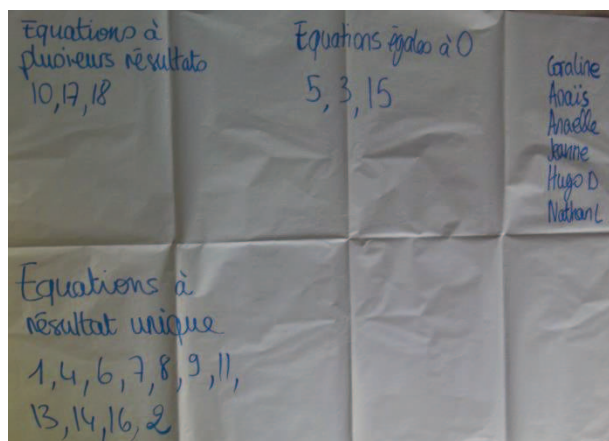 Equations à
plusieurs résultats
10, 17, 18
Equations égales à 0
5, 3, 15
Coraline
Anaïs
Anaëlle
Jeanne
Hugo D
Nathan L
Equations à
résultat unique
1, 4, 6, 7, 8, 9, 11,
13, 14, 16, 2